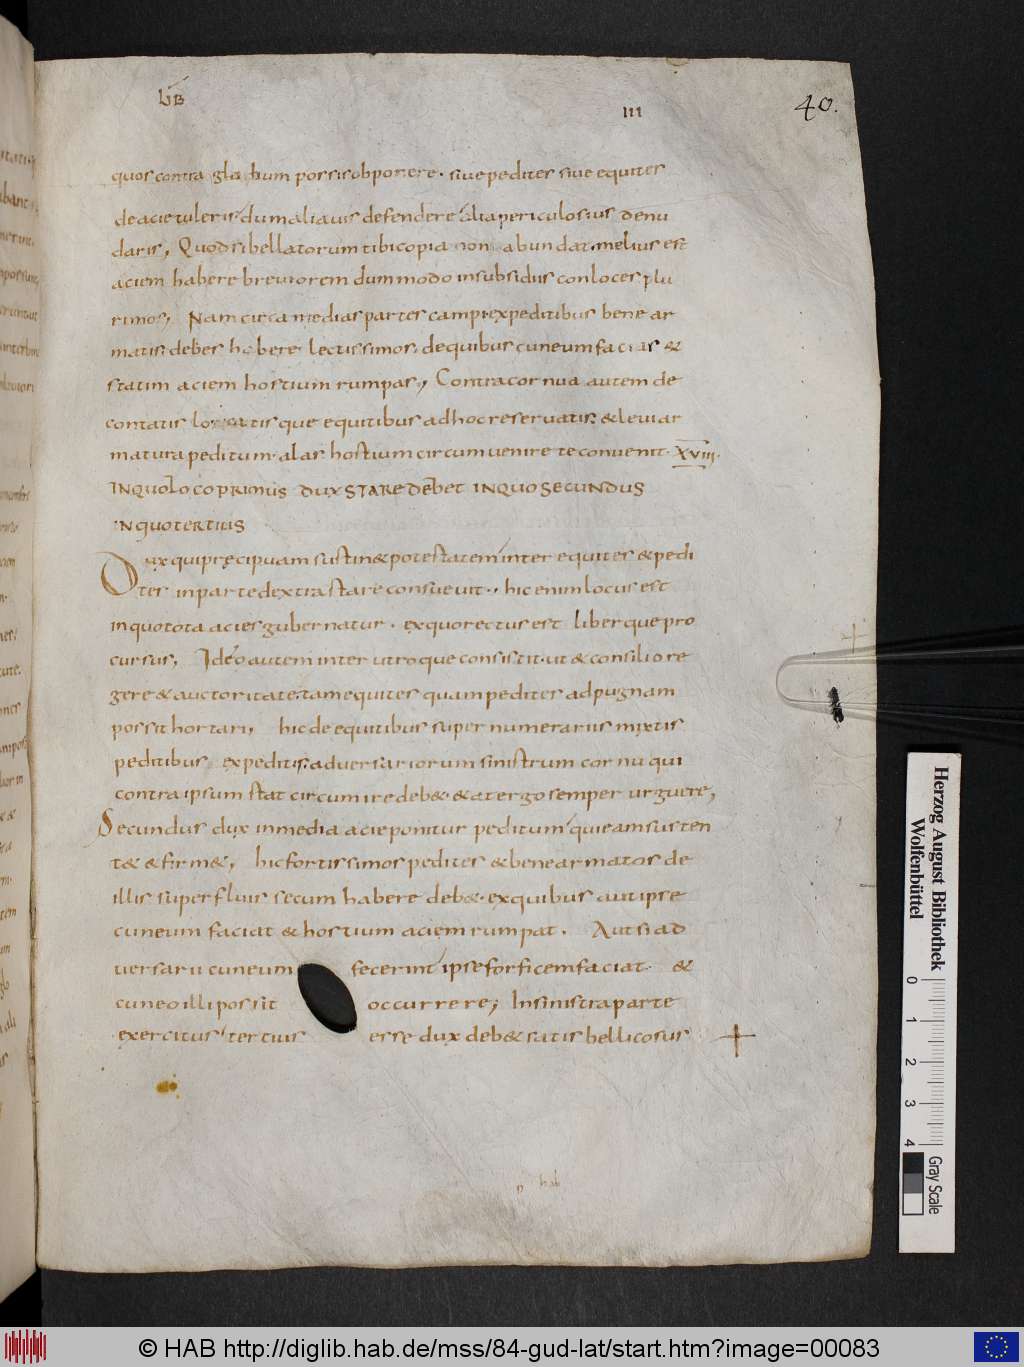 LIB III 40.
quos contra globum possis obponere. sive pedites sive equites
de acie tuleris dum alia vis defendere alia periculosius denu
daris, Quod si bellatorum tibi copia non abundat. melius est
aciem habere breviorem dum modo in subsidiis conloces plu
rimos, Nam circa medias partes campi expeditibus bene ar
matis. debes habere lectissimos. de quibus cuneum facias &
statim aciem hostium rumpas, Contra cornua autem de
contatis loricatisque equitibus ad hoc reservatis. & levi ar
matura peditum. alas hostium circumvenire te convenit. XVIII.
IN QUO LOCO PRIMUS DUX STARE DEBET IN QUO SECUNDUS
IN QUO TERTIUS
Dux qui pręcipuam sustin& potestatem inter equites & pedi
tes in parte dextra stare consuevit. hic enim locus est
in quo tota acies gubernatur. ex quo rectus est liberque pro
cursus, Ideo autem inter utroque consistit. ut & consilio re
gere & auctoritate. tam equites quam pedites ad pugnam
possit hortari, hic de equitibus supernumerariis mixtis
peditibus expeditis. adversariorum sinistrum cornu qui
contra ipsum stat circumire deb&. & a tergo semper urguere,
Secundus dux in media acie ponitur peditum qui eam susten
t& & firm&, hic fortissimos pedites & bene armatos de
illis superfluis secum habere deb&. ex quibus aut ipse
cuneum faciat & hostium aciem rumpat. Aut si ad
versarii cuneum fecerint ipse forficem faciat. &
cuneo illi possit occurrere; In sinistra parte
exercitus tertius esse dux deb& satis bellicosus
hab
Herzog August Bibliothek
Wolfenbüttel
0 1 2 3 4
Gray Scale
© HAB http://diglib.hab.de/mss/84-gud-lat/start.htm?image=00083